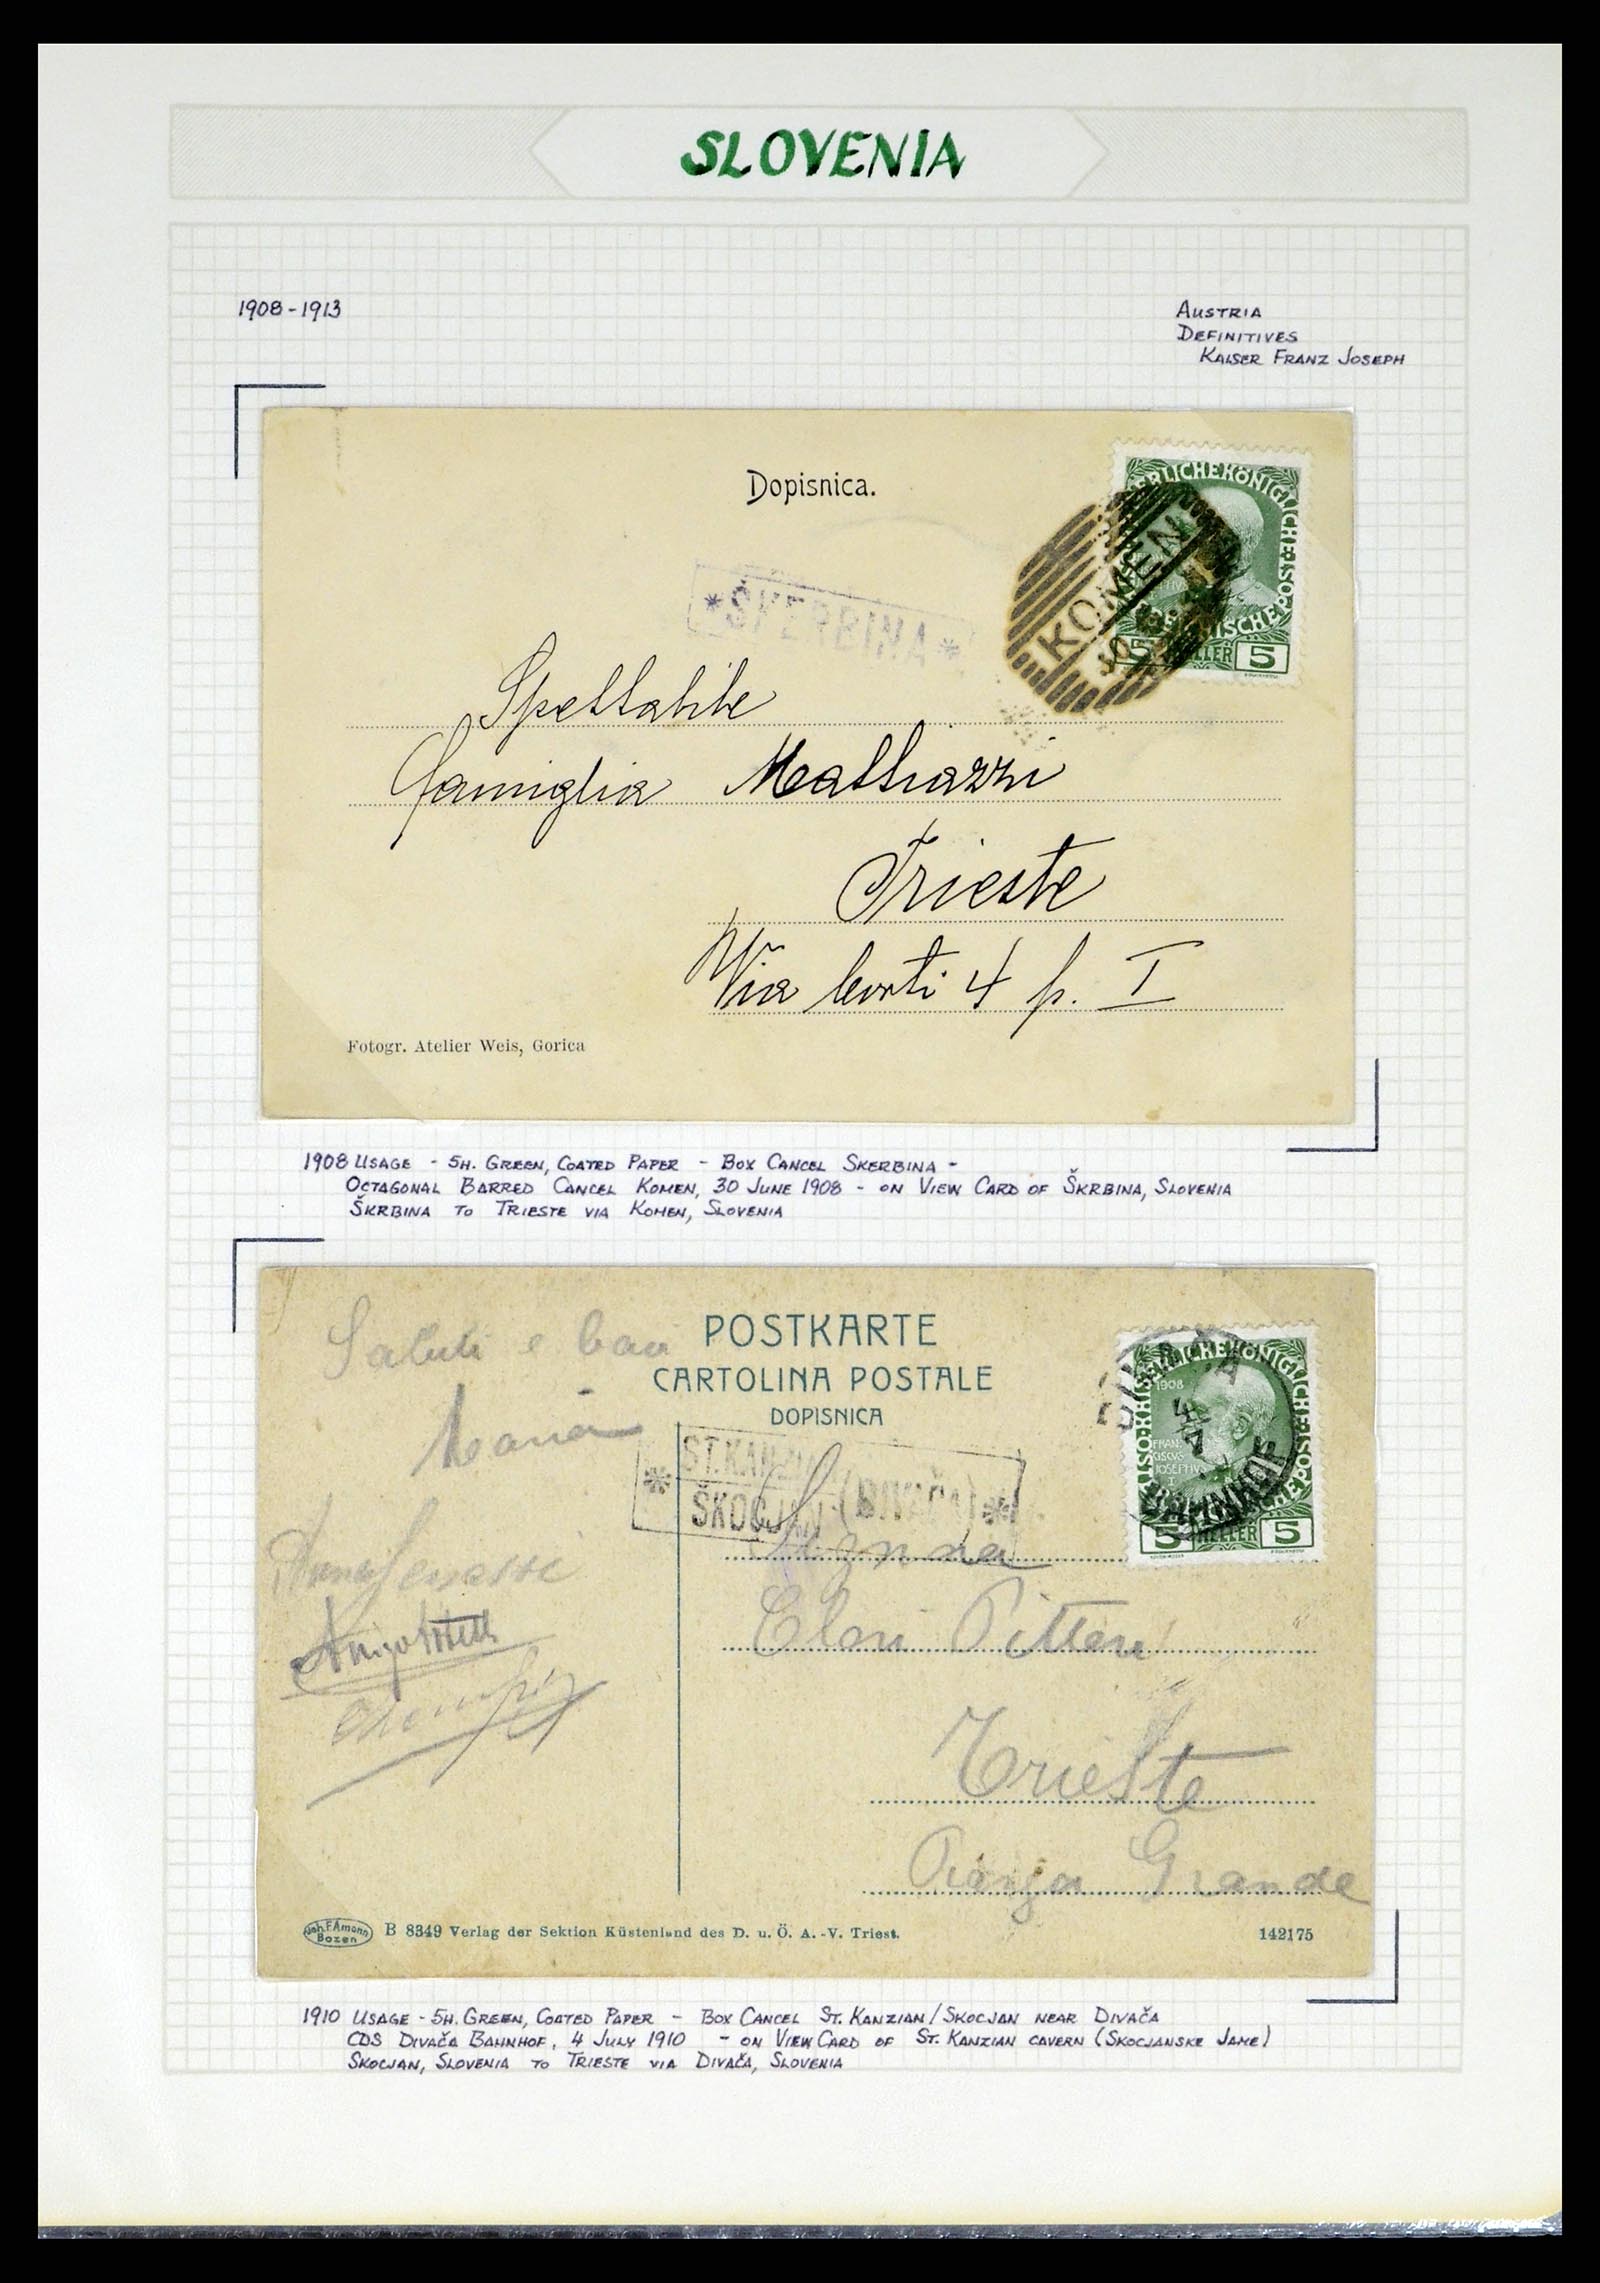 SLOVENIA
1908-1913
AUSTRIA
DEFINITIVES
KAISER FRANZ JOSEPH
Dopisnica.
KOMEN
5 HELLER 5
* ŠKERBINA *
Spettabile
famiglia Mathiazzi
Trieste
Via Corti 4 p. I
Fotogr. Atelier Weis, Gorica
1908 USAGE - 5H. GREEN, COATED PAPER - BOX CANCEL SKERBINA -
OCTAGONAL BARRED CANCEL KOMEN, 30 JUNE 1908 - ON VIEW CARD OF ŠKRBINA, SLOVENIA
ŠKRBINA TO TRIESTE VIA KOMEN, SLOVENIA
Saluti e baci
Maria
POSTKARTE
CARTOLINA POSTALE
DOPISNICA
1908
BAHNHOF
5 HELLER 5
* ST. KANZIAN
ŠKOCJAN (DIVAČA) *
Trieste
Piazza Grande
Joh. F. Amonn
Bozen
B 8349 Verlag der Sektion Küstenland des D. u. Ö. A.-V. Triest.
142175
1910 USAGE - 5H. GREEN, COATED PAPER - BOX CANCEL ST. KANZIAN/SKOCJAN NEAR DIVAČA
CDS DIVAČA BAHNHOF, 4 JULY 1910 - ON VIEW CARD OF ST. KANZIAN CAVERN (SKOCJANSKE JAME)
SKOCJAN, SLOVENIA TO TRIESTE VIA DIVAČA, SLOVENIA